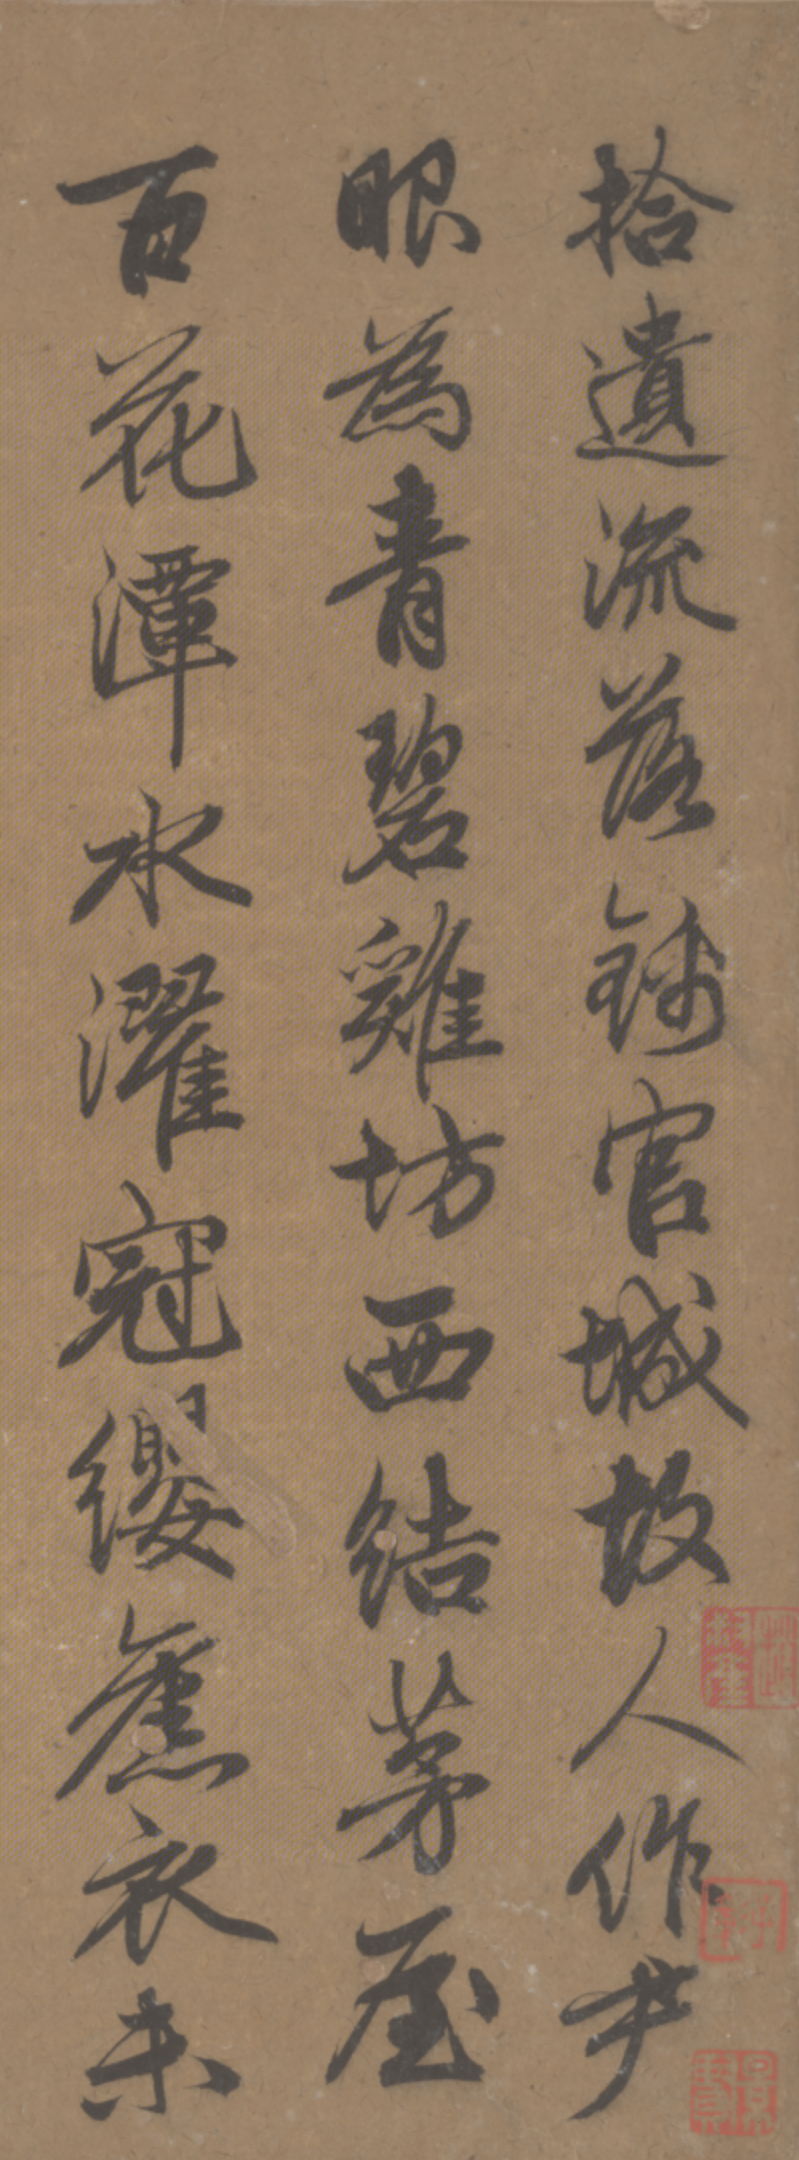 拾遺流落錦官城故人作尹
眼為青碧雞坊西結茅屋
百花潭水濯冠纓舊衣未